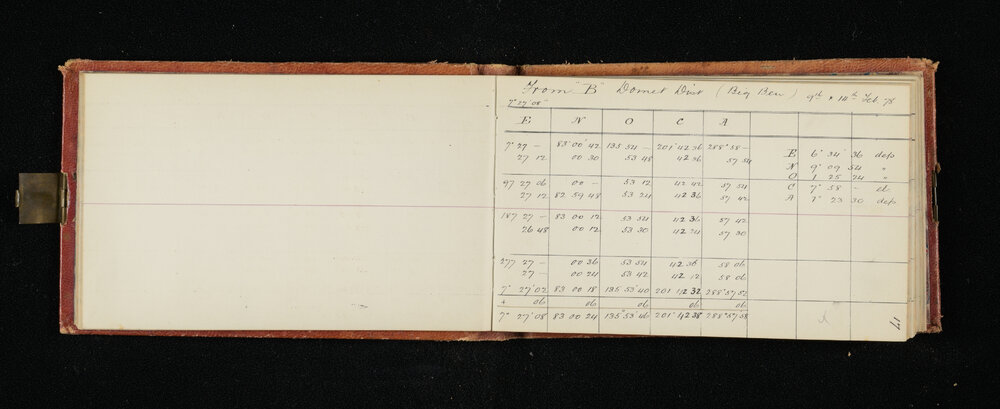 From "B" Domet Dist (Big Ben) 9th & 14th Feb 78
7° 27' 08"
E N O C A
7° 27 – 83° 00 42 135 54 – 201° 42 36 288° 58 – E 6° 34' 36 deps
27 12 00 30 53 48 42 36 57 54 N 9° 09 54 "
O 1 25 24 "
97 27 06 00 – 53 12 42 42 57 54 C 7° 58 – el
27 12 82 59 48 53 24 42 36 57 42 A 1° 23 30 deps
187 27 – 83 00 12 53 54 42 36 57 42
26 48 00 12 53 30 42 24 57 30
277 27 – 00 36 53 54 42 36 58 06
27 – 00 24 53 42 42 12 58 06
7° 27' 02 83 00 18 135 53' 40 201 42 32 288° 57 52
+ 06 06 06 06 06
7° 27' 08 83 00 24 135° 53' 46 201° 42' 38 288° 57' 58
17